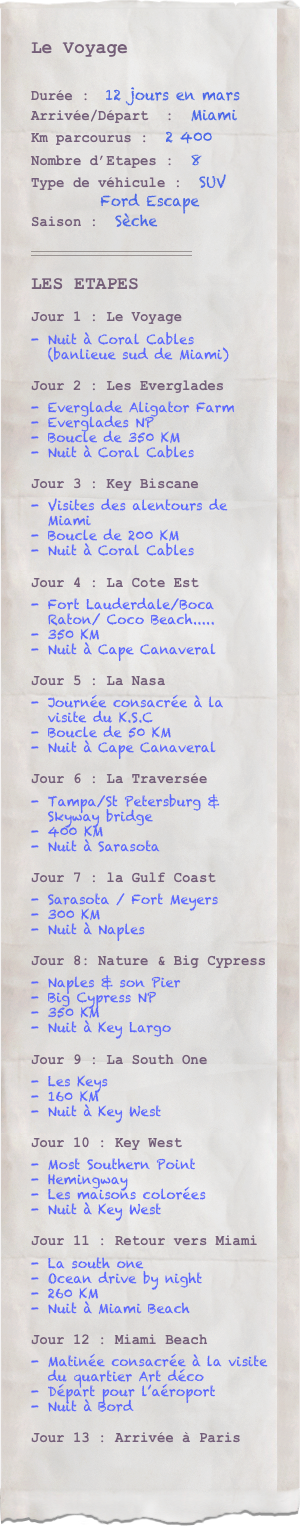 Le Voyage
Durée : 12 jours en mars
Arrivée/Départ : Miami
Km parcourus : 2 400
Nombre d'Etapes : 8
Type de véhicule : SUV
Ford Escape
Saison : Sèche
LES ETAPES
Jour 1 : Le Voyage
- Nuit à Coral Cables
(banlieue sud de Miami)
Jour 2 : Les Everglades
- Everglade Aligator Farm
- Everglades NP
- Boucle de 350 KM
- Nuit à Coral Cables
Jour 3 : Key Biscane
- Visites des alentours de
Miami
- Boucle de 200 KM
- Nuit à Coral Cables
Jour 4 : La Cote Est
- Fort Lauderdale/Boca
Raton/ Coco Beach.....
- 350 KM
- Nuit à Cape Canaveral
Jour 5 : La Nasa
- Journée consacrée à la
visite du K.S.C
- Boucle de 50 KM
- Nuit à Cape Canaveral
Jour 6 : La Traversée
- Tampa/St Petersburg &
Skyway bridge
- 400 KM
- Nuit à Sarasota
Jour 7 : la Gulf Coast
- Sarasota / Fort Meyers
- 300 KM
- Nuit à Naples
Jour 8: Nature & Big Cypress
- Naples & son Pier
- Big Cypress NP
- 350 KM
- Nuit à Key Largo
Jour 9 : La South One
- Les Keys
- 160 KM
- Nuit à Key West
Jour 10 : Key West
- Most Southern Point
- Hemingway
- Les maisons colorées
- Nuit à Key West
Jour 11 : Retour vers Miami
- La south one
- Ocean drive by night
- 260 KM
- Nuit à Miami Beach
Jour 12 : Miami Beach
- Matinée consacrée à la visite
du quartier Art déco
- Départ pour l'aéroport
- Nuit à Bord
Jour 13 : Arrivée à Paris